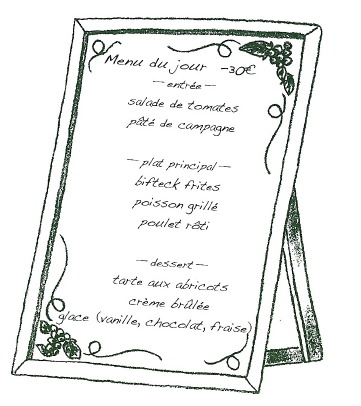 Menu du jour -30€
—entrée—
salade de tomates
pâté de campagne
—plat principal—
bifteck frites
poisson grillé
poulet rôti
—dessert—
tarte aux abricots
crème brûlée
glace (vanille, chocolat, fraise)